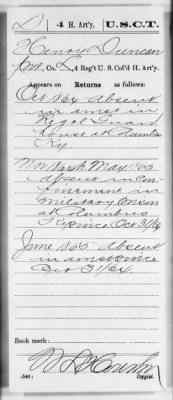 D | 4 H. Art'y. | U.S.C.T.
Henry Duncan
Co. D, 4 Reg't U. S. Col'd H. Art'y.
Appears on Returns as follows:
Oct 1864 absent
in arrest in
Guard
House at Columbus
Ky.
Nov 1864 to May '65
absent in con-
finement in
Military Prison
at Columbus
Ky since Oct 31/64
June 1865 absent
in arrest since
Oct 31/64
Book mark:
(546)
Copyist.